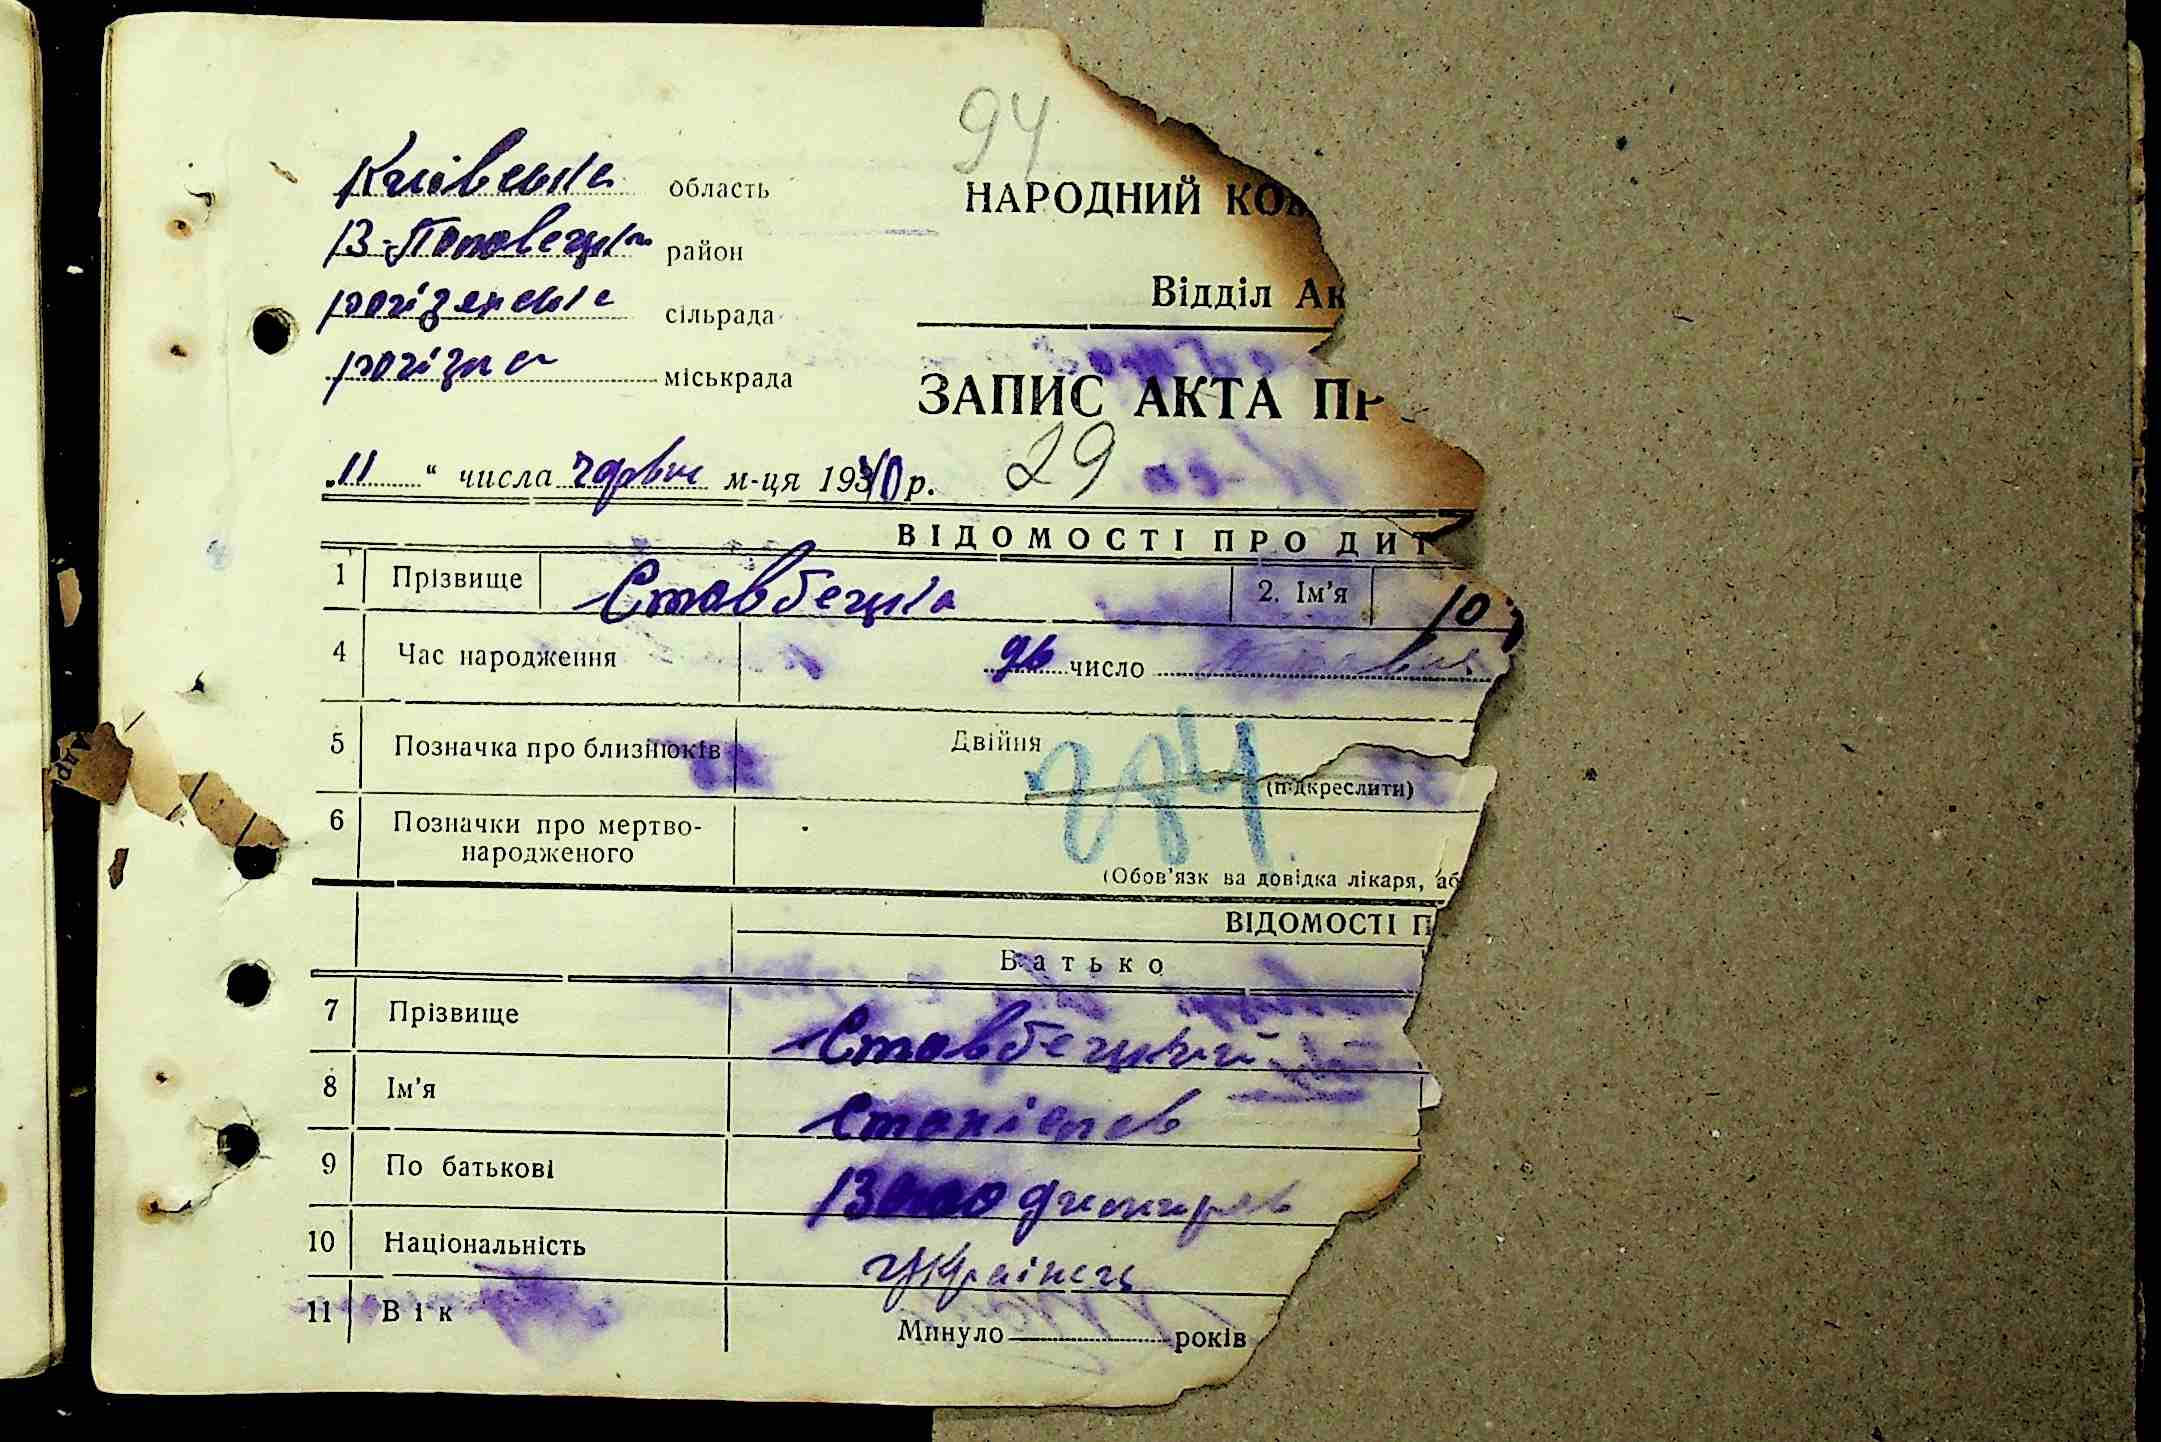 94
Київська область
В-Половецьк район
рогізянська сільрада
рогізна міськрада
НАРОДНИЙ КОМ
Відділ Ак
ЗАПИС АКТА ПР
„11“ числа червн м-ця 1940 р.
29
ВІДОМОСТІ ПРО ДИТ
1 Прізвище Ставбецка 2. Ім'я Ю
4 Час народження 26 число травня
5 Позначка про близнюків Двійня
(підкреслити)
284
6 Позначки про мертво-
народженого
(Обов'язк ва довідка лікаря, аб
ВІДОМОСТІ П
Батько
7 Прізвище Ставбецкий
8 Ім'я Станіслав
9 По батькові
10 Національність Українец
11 Вік
Минуло років